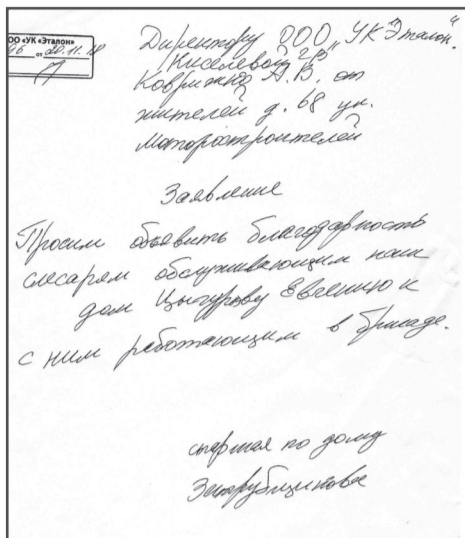 ООО «УК «Эталон»
96 от 20.11.18
Директору ООО "УК "Эталон".
Киселевой
Коврижко А.В. от
жителей д. 68 ул.
Моторостроителей
Заявление
Просим объявить благодарность
слесарям обслуживающим наш
дом Цыгурову Евгению и
с ним работающим в бригаде.
старшая по дому